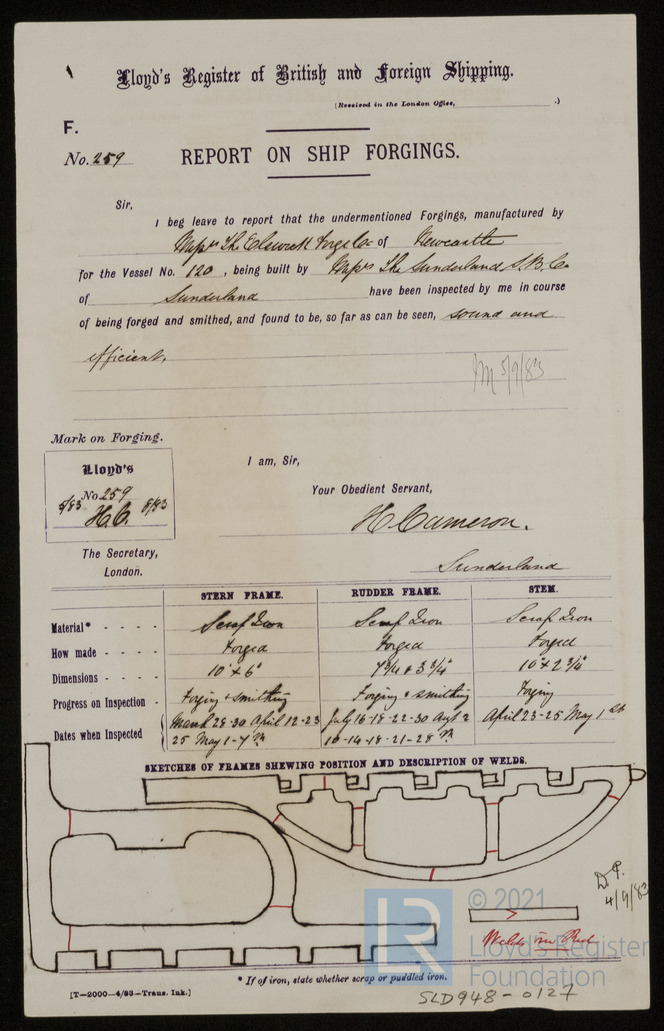 Lloyd's Register of British and Foreign Shipping.
(Received in the London Office, .)
F.
No. 259 REPORT ON SHIP FORGINGS.
Sir,
I beg leave to report that the undermentioned Forgings, manufactured by
Messrs The Elswick Forge Co of Newcastle
for the Vessel No. 120, being built by Messrs The Sunderland S.B. Co
of Sunderland have been inspected by me in course
of being forged and smithed, and found to be, so far as can be seen, sound and
efficient.
5/9/83
Mark on Forging.
Lloyd's
No 259
5/83 H.C. 8/83
I am, Sir,
Your Obedient Servant,
H Cameron.
Sunderland
The Secretary,
London.
STERN FRAME. RUDDER FRAME. STEM.
Material* Scrap Iron Scrap Iron Scrap Iron
How made Forged Forged Forged
Dimensions 10" x 6" 7 3/4 x 3 3/4" 10" x 2 3/4"
Progress on Inspection Forging & smithing Forging & smithing Forging
Dates when Inspected March 28-30 April 12-23 July 16-18-22-30 Augt 2 April 23-25 May 1st
25 May 1-7th 10-14-18-21-28th
SKETCHES OF FRAMES SHEWING POSITION AND DESCRIPTION OF WELDS.
D.P.
4/9/83
Welds in Red
© 2021
Lloyd's Register
Foundation
LR
* If of iron, state whether scrap or puddled iron.
[T—2000—4/83—Trans. Ink.]
SLD948-0127